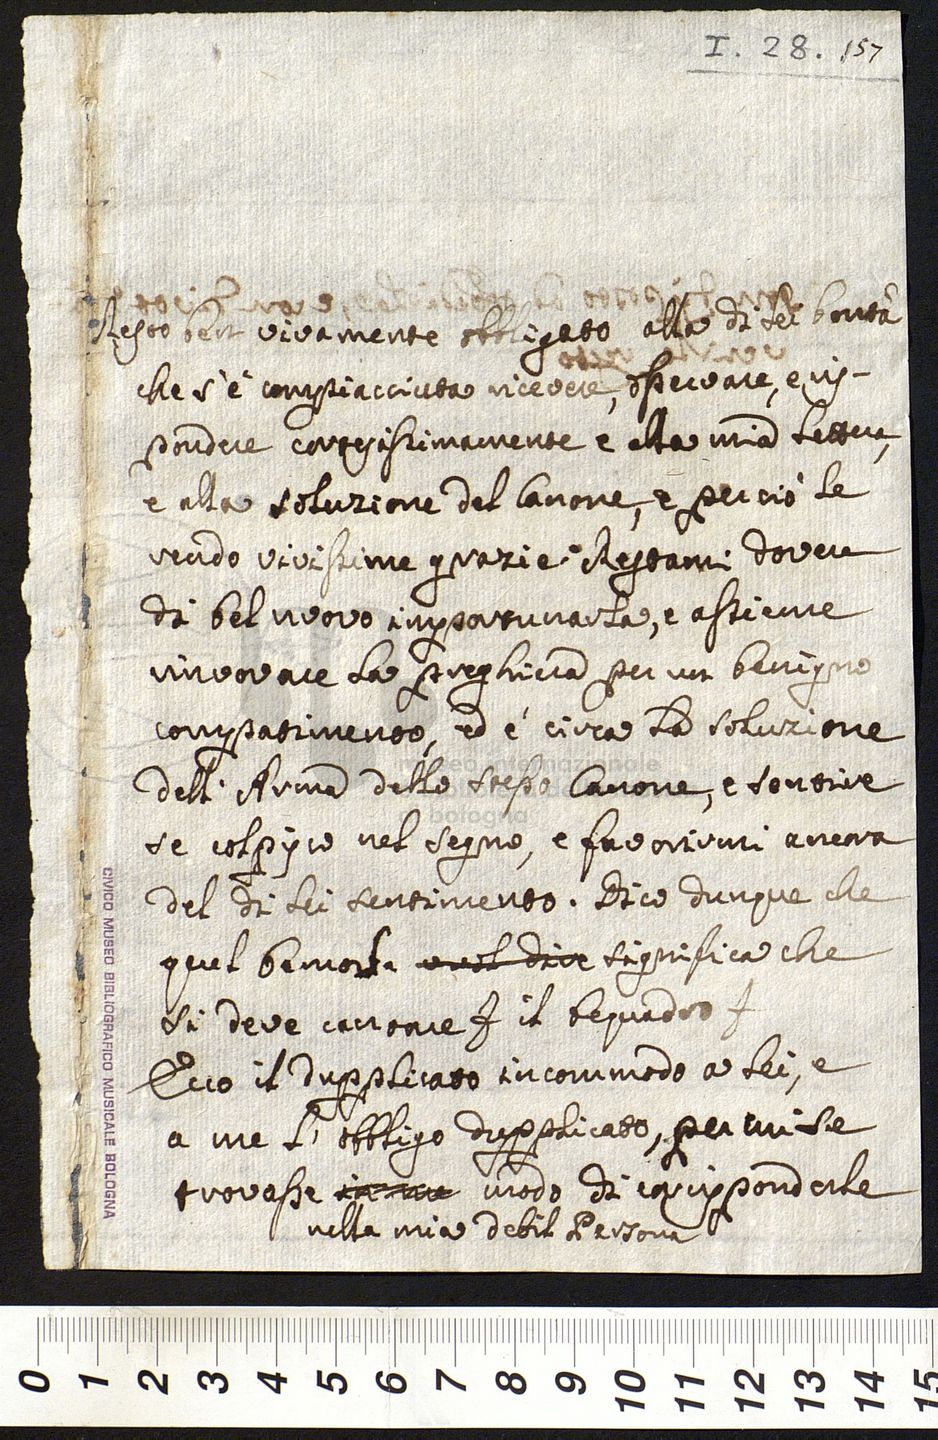 I. 28. 157
Resto ben vivamente obbligato alla di Lei bontà
che s'è compiacciuta ricevere, osservare, e ris-
pondere cortesissimamente e alla mia Lettera,
e alla soluzione del Canone, e perciò Le
rendo vivissime grazie. Restami dovere
di bel nuovo importunarla, e assieme
rinovare la preghiera per un benigno
compatimento, ed è circa la soluzione
dell' Arma dello stesso Canone, e sentire
se colpisco nel segno, e favorirmi ancora
del di Lei sentimento. Dico dunque che
quel bemolle vuol dire significa che
si deve cantare il bequadro
Ecco il dupplicato incommodo a Lei, e
a me l' obbligo dupplicato, per cui se
trovasse modo di corrisponderle
nella mia debil Persona
museo internazionale
bologna
CIVICO MUSEO BIBLIOGRAFICO MUSICALE BOLOGNA
0 1 2 3 4 5 6 7 8 9 10 11 12 13 14 15